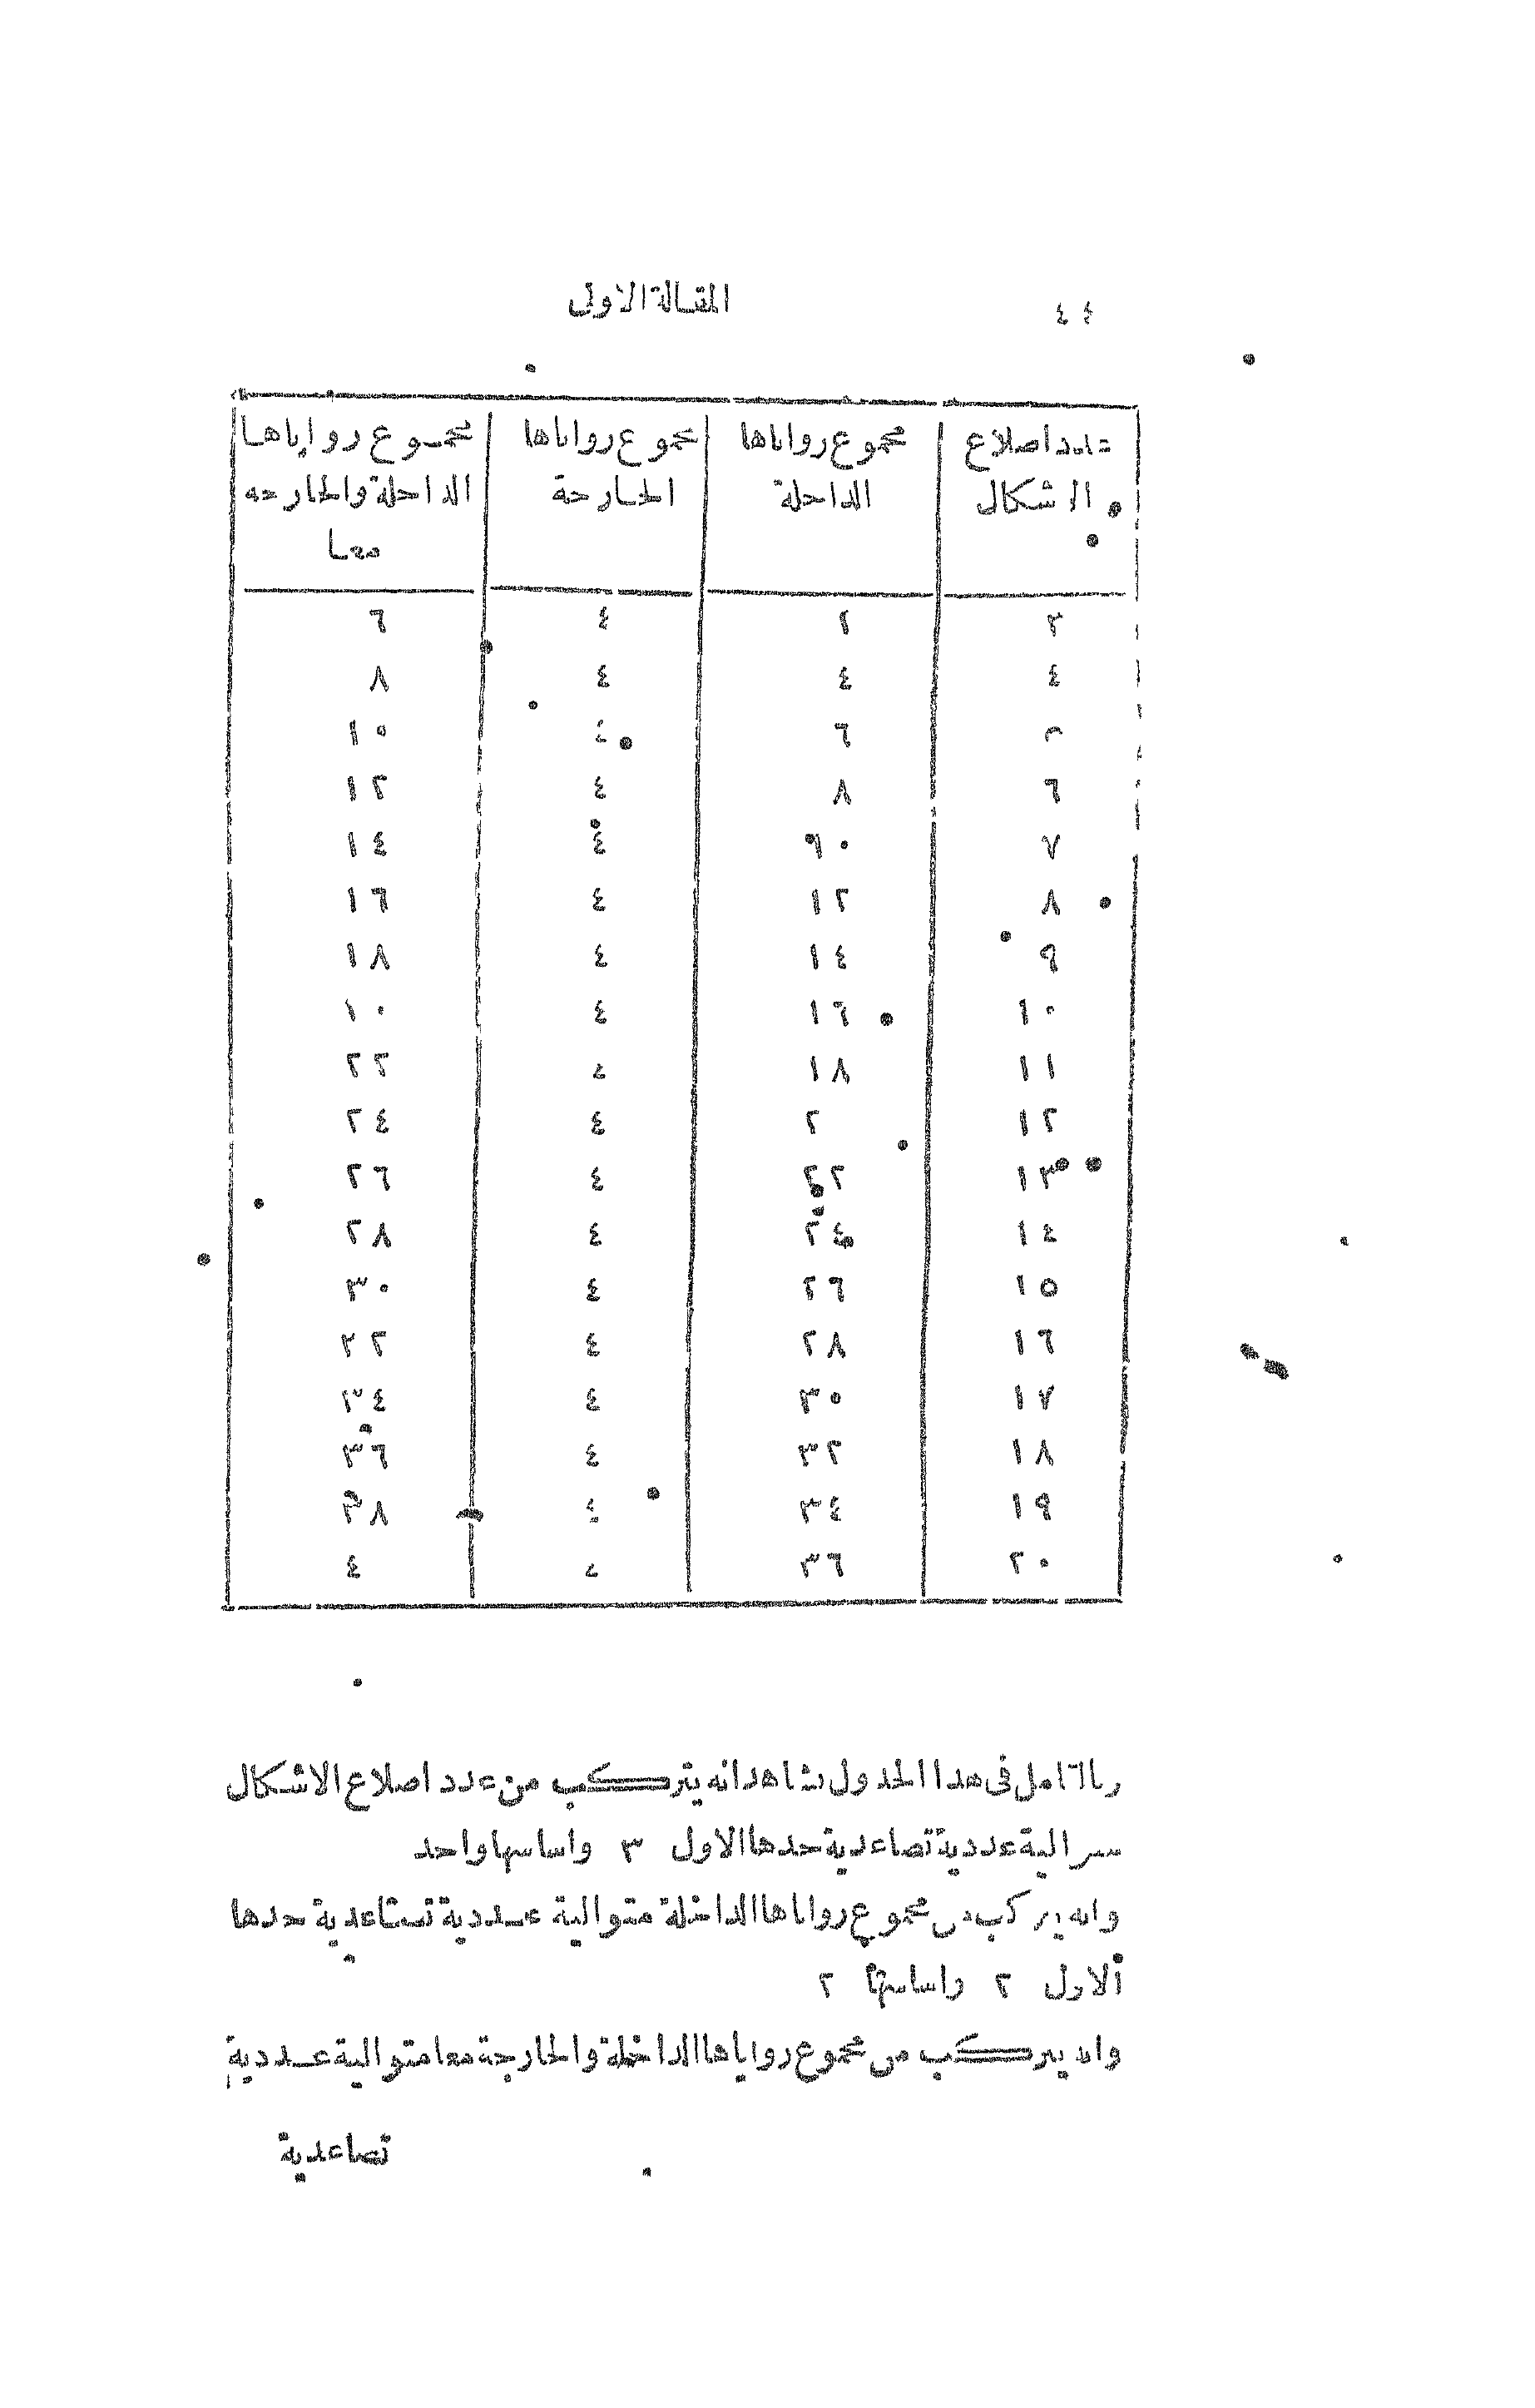 ٤٤ المقالة الاولى
عدد اضلاع الاشكال | مجموع زواياها الداخلة | مجموع زواياها الخارجة | مجموع زواياها الداخلة والخارجة معا
٣ | ٢ | ٤ | ٦
٤ | ٤ | ٤ | ٨
٥ | ٦ | ٤ | ١٠
٦ | ٨ | ٤ | ١٢
٧ | ١٠ | ٤ | ١٤
٨ | ١٢ | ٤ | ١٦
٩ | ١٤ | ٤ | ١٨
١٠ | ١٦ | ٤ | ٢٠
١١ | ١٨ | ٤ | ٢٢
١٢ | ٢ | ٤ | ٢٤
١٣ | ٢٢ | ٤ | ٢٦
١٤ | ٢٤ | ٤ | ٢٨
١٥ | ٢٦ | ٤ | ٣٠
١٦ | ٢٨ | ٤ | ٣٢
١٧ | ٣٠ | ٤ | ٣٤
١٨ | ٣٢ | ٤ | ٣٦
١٩ | ٣٤ | ٤ | ٣٨
٢٠ | ٣٦ | ٤ | ٤
وبالتامل فى هذا الجدول نشاهد انه يتركب من عدد اضلاع الاشكال
متوالية عددية تصاعدية حدها الاول ٣ واساسها واحد
وانه يتركب من مجموع زواياها الداخلة متوالية عددية تصاعدية حدها
الاول ٢ واساسها ٢
وانه يتركب من مجموع زواياها الداخلة والخارجة معا متوالية عددية
تصاعدية